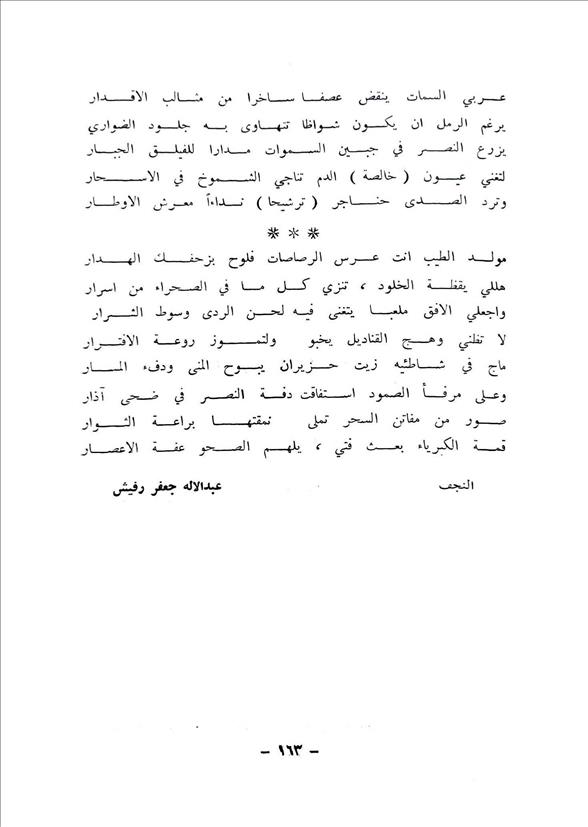 عربي السمات ينقض عصفا ساخرا من مثالب الاقدار
يرغم الرمل ان يكون شواظا تتهاوى به جلود الضواري
يزرع النصر في جبين السموات مدارا للفيلق الجبار
لتغني عيون ( خالصة ) الدم تناجي الشموخ في الاسحار
وترد الصدى حناجر ( ترشيحا ) نداءاً معرش الاوطار
* * *
مولد الطيب انت عرس الرصاصات فلوح بزحفك الهدار
هللي يقظة الخلود ، تنزي كل ما في الصحراء من اسرار
واجعلي الافق ملعبا يتغنى فيه لحن الردى وسوط الثرار
لا تظني وهج القناديل يخبو ولتموز روعة الافترار
ماج في شاطئيه زيت حزيران يبوح المنى ودفء المسار
وعلى مرفأ الصمود استفاقت دفة النصر في ضحى آذار
صور من مفاتن السحر تملى نمقتها براعة الثوار
قمة الكبرياء بعث فتي ، يلهم الصحو عفة الاعصار
النجف عبدالاله جعفر رفيش
– ١٦٣ –